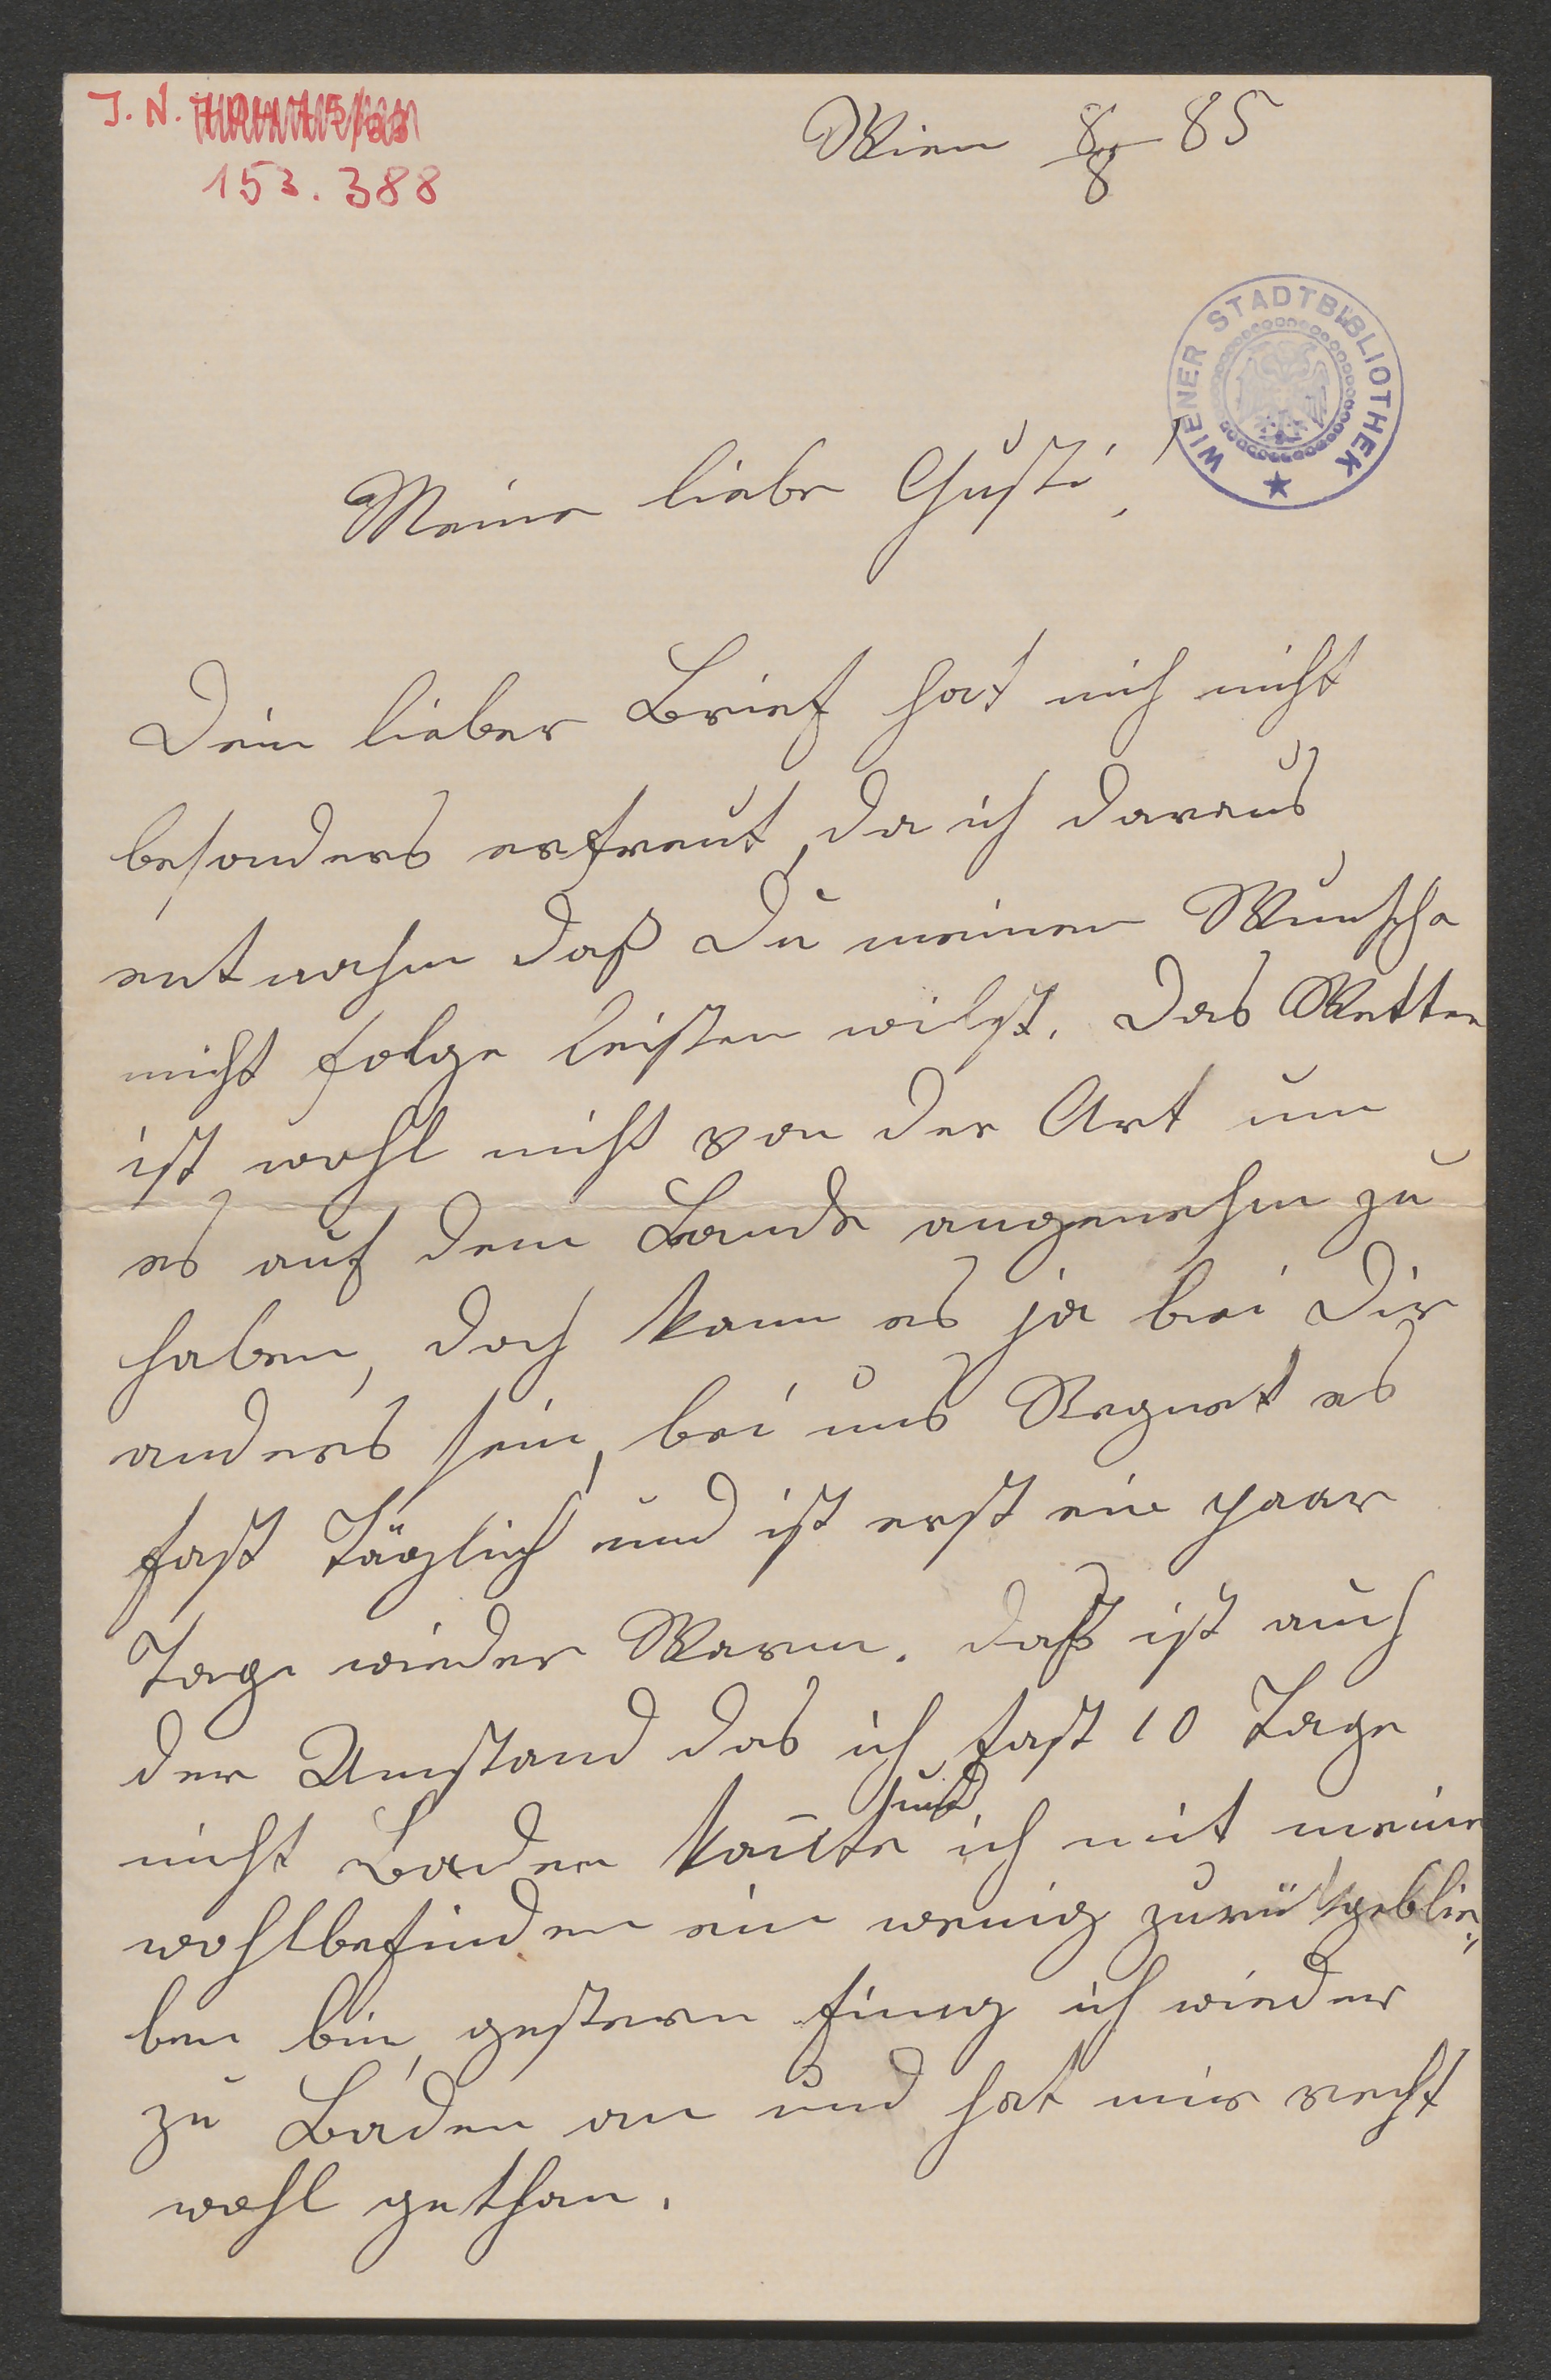 J. N.
153.388
Wien 8/8 85
WIENER STADTBIBLIOTHEK
Meine liebe Gusti!
Dein lieber Brief hat mich nicht
besonders erfreut, da ich daraus
entnahm daß Du meinem Wunsche
nicht folge leisten willst. Das Wetter
ist wohl nicht von der Art um
es auf dem Lande angenehm zu
haben, doch kann es ja bei Dir
anders sein, bei uns Regnet es
fast Täglich und ist erst ein paar
Tage wieder Warm. daß ist auch
der Umstand das ich fast 10 Tage
nicht Baden kon̄te und ich mit meine
wohlbefinden ein wenig zurükgeblie„
ben bin, gestern fing ich wieder
zu Baden an und hat mir recht
wohl gethan.